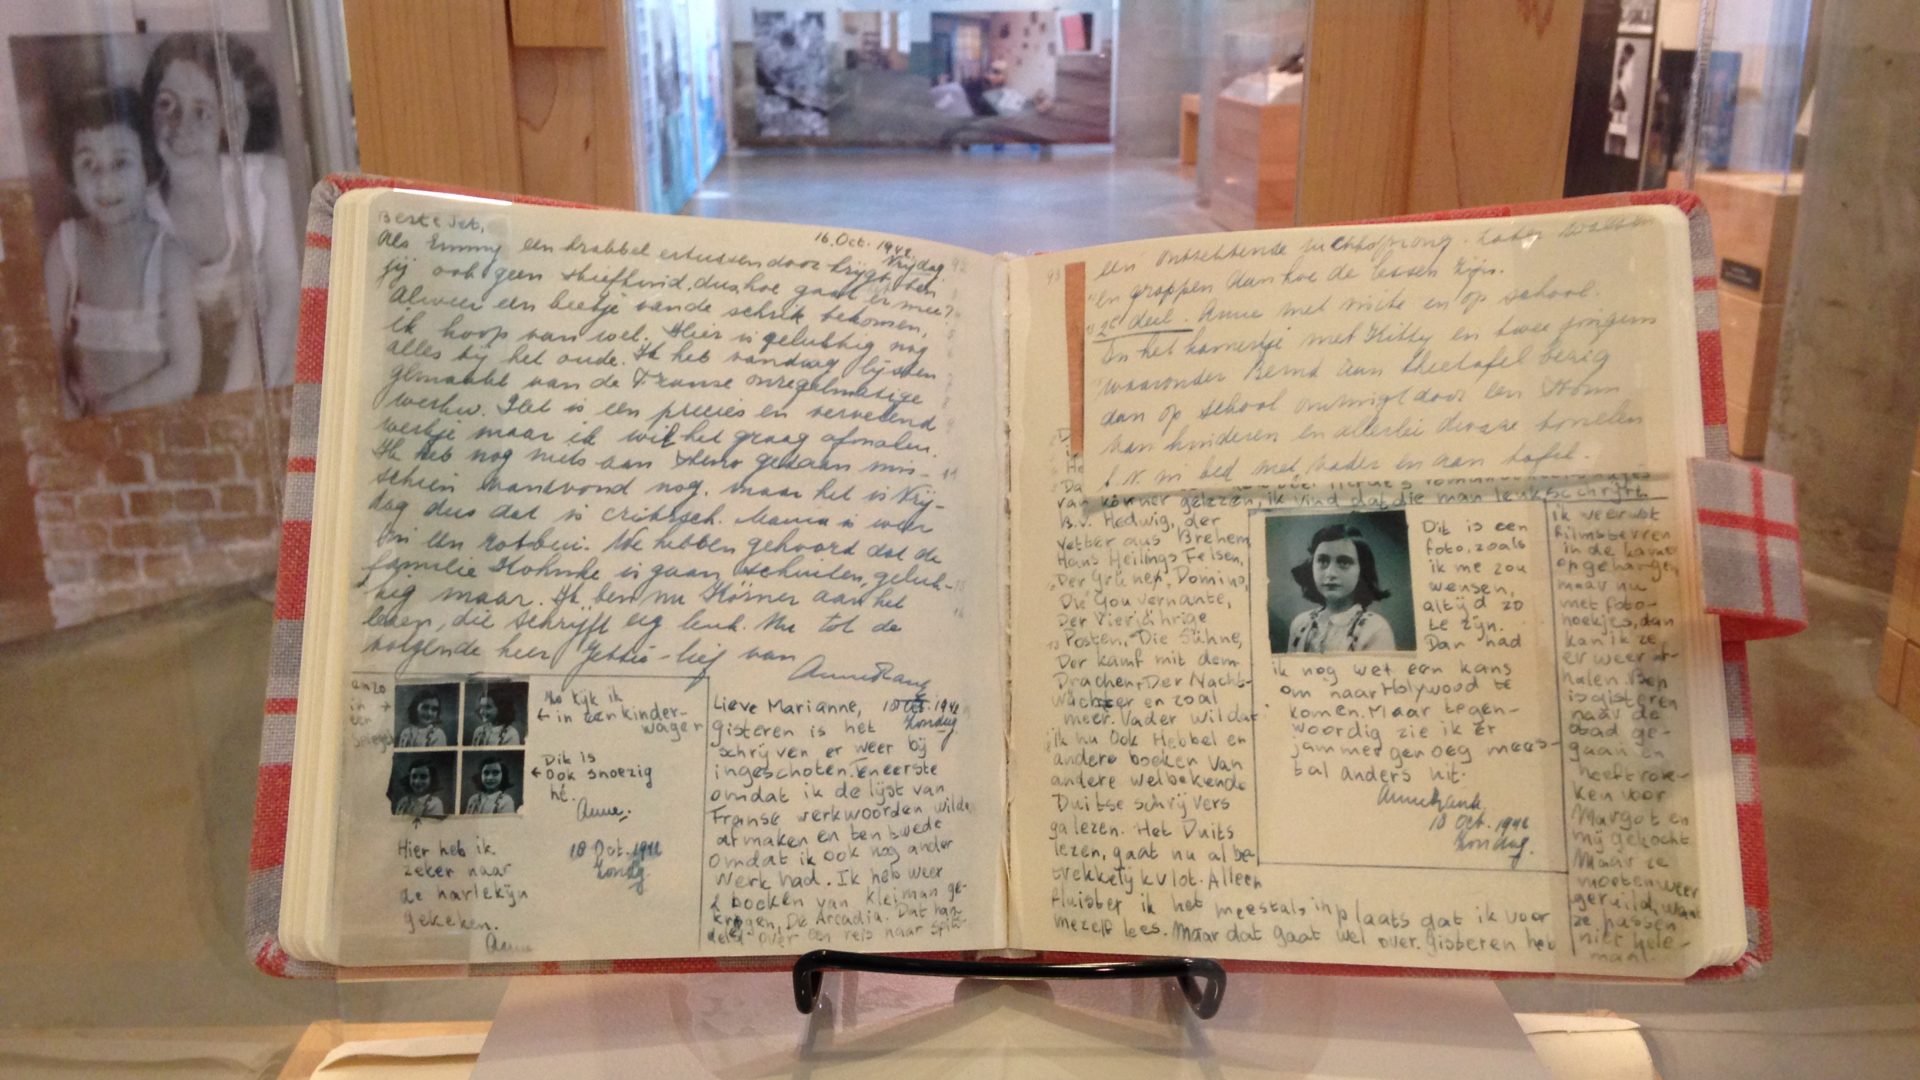 Beste Jet,
16 Oct. 1942.
Vrijdag
Als Emmy een krabbel ertussendoor krijgt, ben
jij ook geen stiefkind, dus hoe gaat er mee?
Alweer een beetje van de schrik bekomen,
ik hoop van wel. Hier is gelukkig nog
alles bij het oude. Ik heb vandaag lijsten
gemaakt van de Franse onregelmatige
werkw. Het is een precies en vervelend
werkje maar ik wil het graag afmaken.
Ik heb nog niets aan Steno gedaan mis-
schien vanavond nog. maar het is Vrij-
dag dus dat is critisch. Mama is weer
in een
We hebben gehoord dat de
familie Kohnke is gaan schuilen, geluk-
kig maar. Ik ben nu Körner aan het
lezen, die schrijft erg leuk. Nu tot de
volgende keer Jettie-lief van
Anne Frank
enzo
in
een
Spiegel
No kijk ik
← in een kinder-
wagen
Dit is
← ook snoezig
hé.
Anne.
Hier heb ik
zeker naar
de harlekijn
gekeken.
Anne
18 Oct. 1942
Zondag
Lieve Marianne, 18 Oct. 1942
Zondag
gisteren is het
schrijven er weer bij
ingeschoten. Ten eerste
omdat ik de lijst van
Franse werkwoorden wilde
afmaken en ten twede
omdat ik ook nog ander
werk had. Ik heb weer
2 boeken van Kleiman ge-
kregen, De Arcadia. Dat han-
delt over een reis naar Spits-
93
een ontzettende luchtsprong. Later walsen
en grappen dan hoe de lessen zijn.
2e deel. Anne met visite en op school.
In het kamertje met Kitty en twee jongens
waaronder Bernd aan theetafel bezig
dan op school omringd door een stroom
van kinderen en allerlei dwaze tonelen
b.v. in bed met Vader en aan tafel.
van Körner gelezen, ik vind dat die man leuk schrijft
B.v. Hedwig, der
Vetter aus Brehem,
Hans Heilings Felsen,
Der Grüner Domino,
Die Gouvernante,
Der Vierjährige
Posten, Die Sühne,
Der kamf mit dem
Drachen, Der Nacht-
wächter en zoal
meer. Vader wil dat
ik nu ook Hebbel en
andere boeken van
andere welbekende
Duitse schrijvers
ga lezen. Het Duits
lezen, gaat nu al be-
trekkelijk vlot. Alleen
fluister ik het meestals inplaats dat ik voor
mezelf lees. Maar dat gaat wel over. gisteren heb
Dit is een
foto, zoals
ik me zou
wensen,
altijd zo
te zijn.
Dan had
ik nog wet een kans
om naar Holywood te
komen. Maar tegen-
woordig zie ik er
jammer genoeg mees-
tal anders uit.
Anne Frank
18 Oct. 1942
Zondag.
ik weer wat
filmsterren
in de kamer
opgehangen
maar nu
met foto-
hoekjes, dan
kan ik ze
er weer af-
halen. Bep
is gisteren
naar de
stad ge-
gaan en
heeft rok-
ken voor
Margot en
mij gekocht
Maar ze
moeten weer
geruild, want
ze passen
niet hele-
maal.